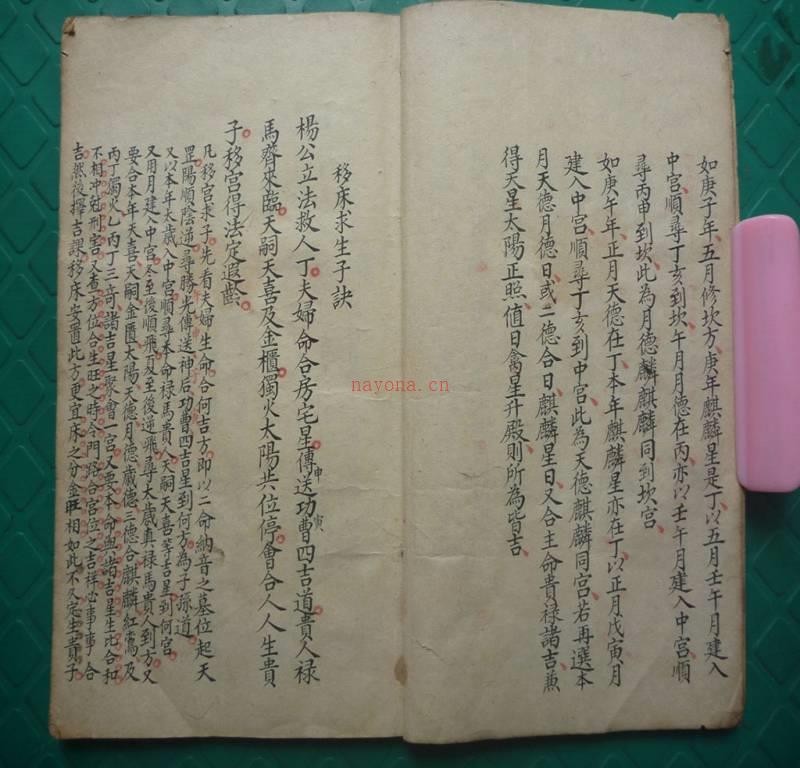 如庚子年、五月修坎方、庚年麒麟星是丁、以五月壬午月建入
中宮、順尋丁亥到坎、午月月德在丙、亦以壬午月建入中宮順
尋丙申到坎、此為月德麒麟同到坎宮、
如庚午年、正月天德在丁、本年麒麟星亦在丁、以正月戊寅月
建入中宮、順尋丁亥到中宮、此為天德麒麟同宮、若再選本
月天德月德日、或二德合日、麒麟星日、又合主命貴禄諸吉兼
得天星太陽正照、值日禽星升殿、則所為皆吉、
移床求生子訣
楊公立法救人丁。夫婦命合房宅星。傳送功曹四吉道。貴人禄
申寅
馬齊來臨。天嗣天喜及金櫃。獨火太陽共位停。會合人人生貴
子。移宮得法定遐齡。
凡移宮求子。先看夫婦生命合何吉方。即以二命納音之墓位起天
罡。陽順陰逆。尋勝光傳送神后功曹四吉星到何方。為子孫道。
又以本年太歲入中宮。順尋本命禄馬貴人天嗣天喜等吉星到何宮
又用月建入中宮。冬至後順飛。夏至後逆飛。尋太歲真禄馬貴人到方。又
要合本年天喜天嗣金匱太陽天德月德歲德三德合麒麟紅鸞及
丙丁獨火乙丙丁三奇諸吉星聚會一宮。又要本命與諸吉星生比合和
不相冲尅刑害。又查方位合生旺之時。令門路合宮位之吉祥。必事事合
吉。然後擇吉課移床安置此方。更宜床之分金旺相。如此不久定生貴子
nayona.cn